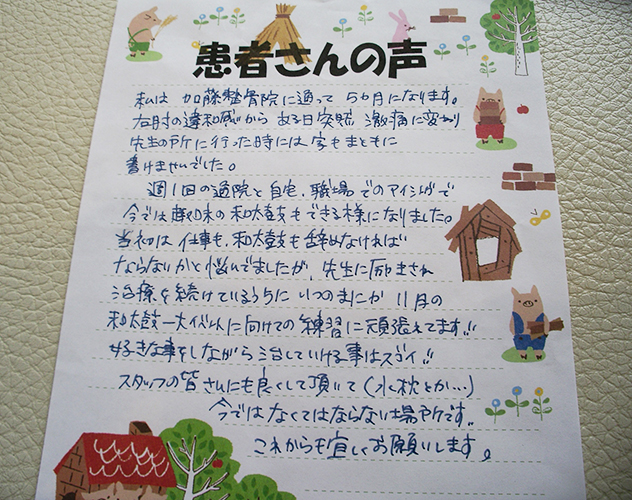 患者さんの声
私は 加藤整骨院に通って 5ヶ月になります。
右肘の違和感から ある日突然 激痛に変わり
先生の所に行った時には 字もまともに
書けませんでした。
週1回の通院と 自宅、職場でのアイシングで
今では 趣味の 和太鼓もできる様になりました。
当初は 仕事も、和太鼓も 辞めなければ
ならないかと悩んでましたが、先生に励まされ
治療を続けているうちに いつのまにか 11月の
和太鼓一大イベントに向けての 練習に頑張れてます!!
好きな事をしながら 治していける事はスゴイ!!
スタッフの皆さんにも良くして頂いて(水枕とか…)
今ではなくてはならない場所です。
これからも宜しくお願いします。